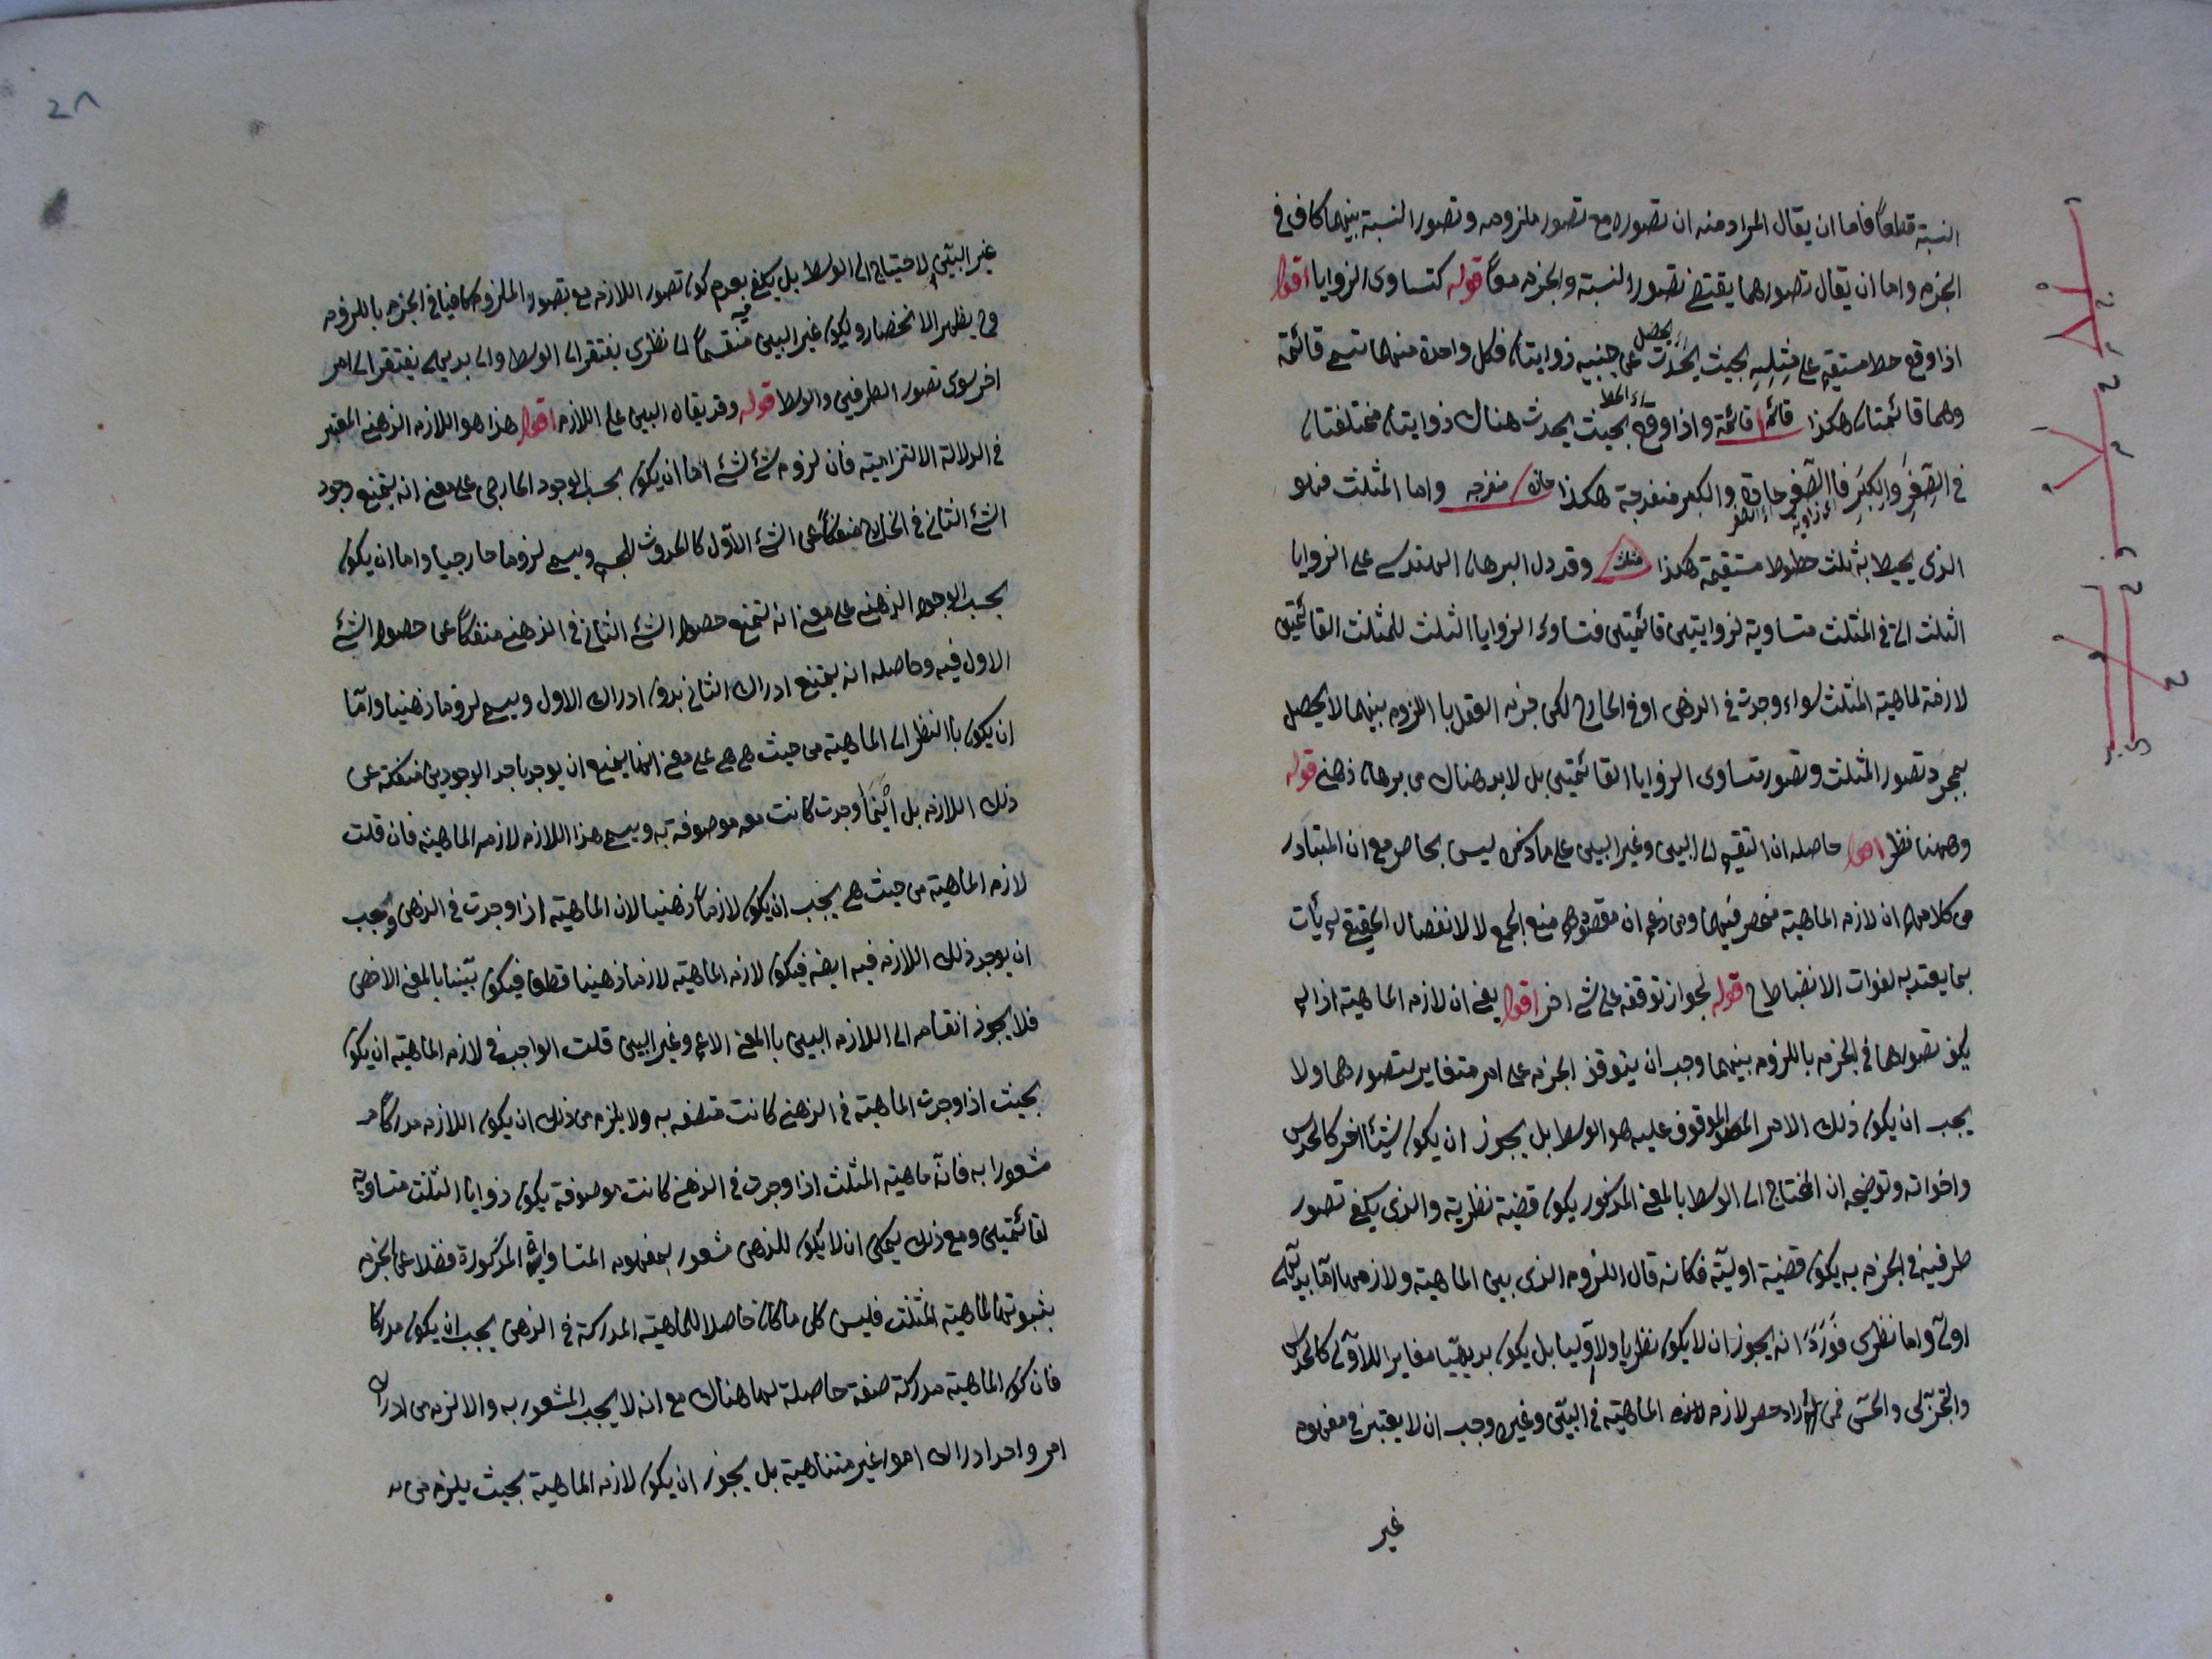 النسبة قطعاً فاما ان يقال المراد منه ان تصوره مع تصور ملزومه وتصور النسبة بينهما كاف فى
الجزم واما ان يقال تصورهما يقتضى تصور النسبة والجزم معاً قوله كتساوى الزوايا اقول
اذا وقع خط مستقيم على مثله بحيث يحدث عن جنبيه زوايتان فكل واحدة منهما تسمى قائمة
يحصل
وهما قائمتان هكذا قائمة قائمة واذا وقع بحيث يحدث هناك زوايتان مختلفتان
اى الخط
فى الصِّغَرِ وَالكِبَرِ فاالصغير حادة والكبير منفرجة هكذا حادة منفرجه واما المثلث فهو
الذى يحيط به ثلث خطوط مستقيمة هكذا مثلث وقد دل البرهان الهندسى على الزوايا
الثلث التى فى المثلث متساوية لزوايتين قائمتين فتساوى الزوايا الثلث للمثلث القائمتين
لازمة لماهية المثلث سواء وجدت فى الذهن او فى الخارج لكن جزم العقل باللزوم بينهما لا يحصل
بمجرد تصور المثلث وتصور تساوى الزوايا القائمتين بل لا بد هناك من برهان ذهنى قوله
وههنا نظر اقول حاصله ان التقسيم الى البين وغير البين على ما ذكره ليس بحاصر مع ان المتبادر
من كلامهم ان لازم الماهية منحصر فيهما ومن زعم ان مقصودهم منع الجمع لا الانفصال الحقيقى لم يأت
بما يعتد به لفوات الانضباط ح قوله لجواز توقفه على شئ اخر اقول يعنى ان لازم الماهية اذا لم
يكف تصورهما فى الجزم باللزوم بينهما وجب ان يتوقف الجزم على امر متغاير لتصورهما ولا
يجب ان يكون ذلك الامر الموقوف عليه هو الوسط بل يجوز ان يكون شيئا اخر كالحدس
واخواته وتوضيحه ان المحتاج الى الوسط بالمعنى المذكور يكون قضية نظرية والذى يكفى تصور
طرفيه فى الجزم به يكون قضية اولية فكانه قال اللزوم الذى بين الماهية ولازمها اما بديهى
اولى واما نظرى فَوَرَدَ انه يجوز ان لا يكون نظريا ولا اوليا بل يكون بديهيّا مغايرا للاولى كالحدس
والتجربى والحسّى فمن اراد حصر لازم الماهية فى البيّن وغيره وجب ان لا يعتبر فى مفهوم
غير
غير البيّن الاحتياج الى الوسط بل يكفى بعدم كون تصور اللازم مع تصور الملزوم كافيا فى الجزم باللزوم
فح يظهر الانحصار ويكون غير البين منقسماً الى نظرى يفتقر الى الوسط والى بديهى يفتقر الى امر
اخر سوى تصور الطرفين والوسط قوله وقد يقال البين على اللازم اقول هذا هو اللازم الذهنى المعتبر
فى الدلالة الالتزامية فان لزوم شئ لشئ اما ان يكون بحسب الوجود الخارجى على معنى انه يمتنع وجود
الشئ الثانى فى الخارج منفكاً عن الشئ الاوّل كالحدوث للجسم ويسمى لزوما خارجيا واما ان يكون
بحسب الوجود الذهنى على معنى انه يمتنع حصول الشئ الثانى فى الذهن منفكاً عن حصول الشئ
الاول فيه وحاصله انه يمتنع ادراك الثانى بدون ادراك الاول ويسمى لزوما ذهنيا وامّا
ان يكون باالنظر الى الماهية من حيث هى هى على معنى انها يمتنع ان يوجد باحد الوجودين منفكة عن
ذلك اللازم بل اينما وجدت كانت معه موصوفة به ويسمى هذا اللازم لازم الماهية فان قلت
لازم الماهية من حيث هى يجب ان يكون لازماً ذهنيا لان الماهية اذا وجدت فى الذهن وجب
ان يوجد ذلك اللازم فيه ايضه فيكون لازم الماهية لازما ذهنيا قطعا فيكون بيّنا بالمعنى الاخص
فلا يجوز انقسامه الى اللازم البين باالمعنى الاعم وغير البين قلت الواجب فى لازم الماهية ان يكون
بحيث اذا وجدت الماهية فى الذهن كانت متصفه به ولا يلزم من ذلك ان يكون اللازم مدركاً
مشعورا به فانّ ماهية المثلث اذا وجدت فى الذهن كانت موصوفة يكون زوايا الثلث متساوية
لقائمتين ومع ذلك يمكن ان لا يكون للذهن شعور بمفهوم المتساوية المذكورة فضلا عن الجزم
بثبوتها لماهية المثلث فليس كل ما كان حاصلا للماهية المدركة فى الذهن يجب ان يكون مدركا
فان كون الماهية مدركة صفة حاصلة لها هناك مع انه لا يجب الشعور به والا لزم من ادراك
امر واحد ادراك امور غير متناهية بل يجوز ان يكون لازم الماهية بحيث يلزم من
٢٨